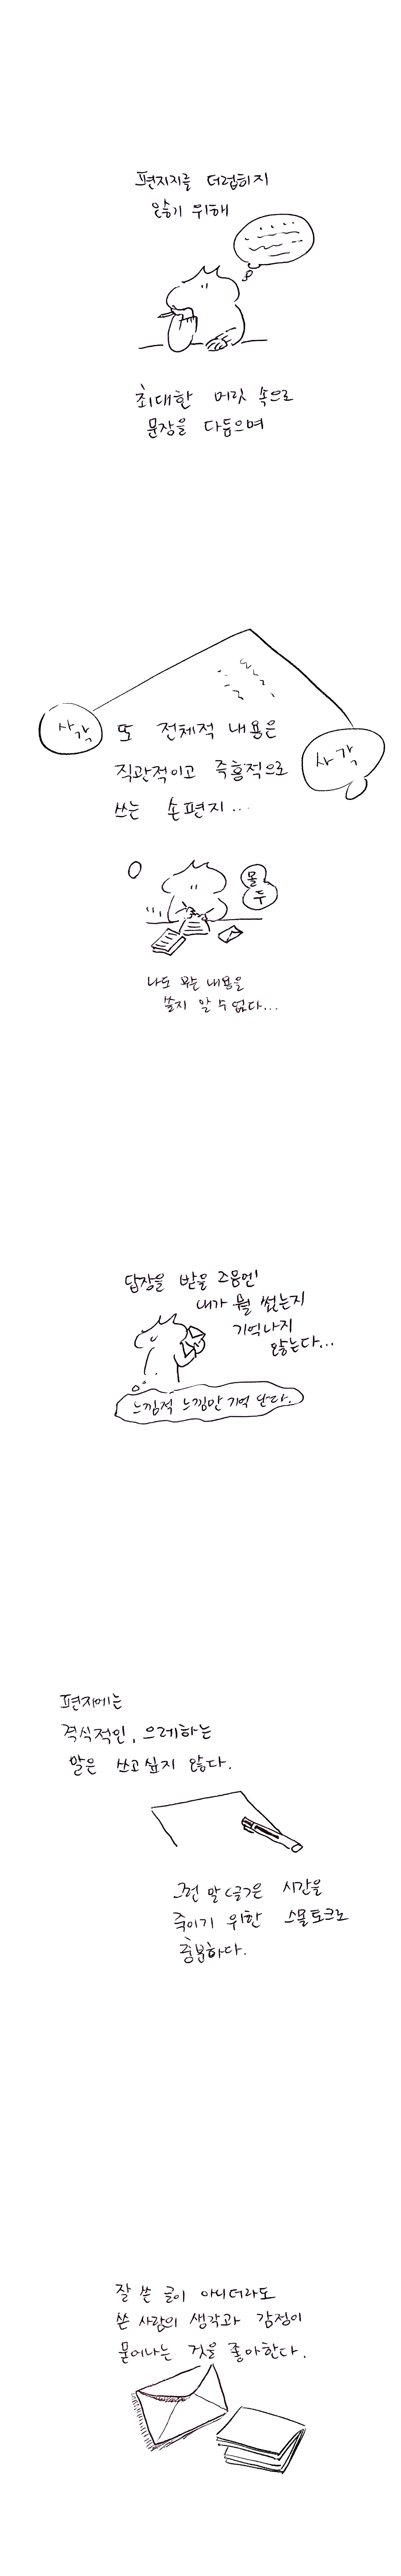 편지지를 더럽히지
않기 위해
최대한 머릿 속으로
문장을 다듬으며
사각
또 전체적 내용은
사각
직관적이고 즉흥적으로
쓰는 손편지...
몰
두
나도 무슨 내용을
쓸지 알 수 없다...
답장을 받을 즈음엔
내가 뭘 썼는지
기억나지
않는다...
느낌적 느낌만 기억 난다.
편지에는
격식적인, 으레하는
말은 쓰고싶지 않다.
그런 말(글)은 시간을
죽이기 위한 스몰토크로
충분하다.
잘 쓴 글이 아니더라도
쓴 사람의 생각과 감정이
묻어나는 것을 좋아한다.